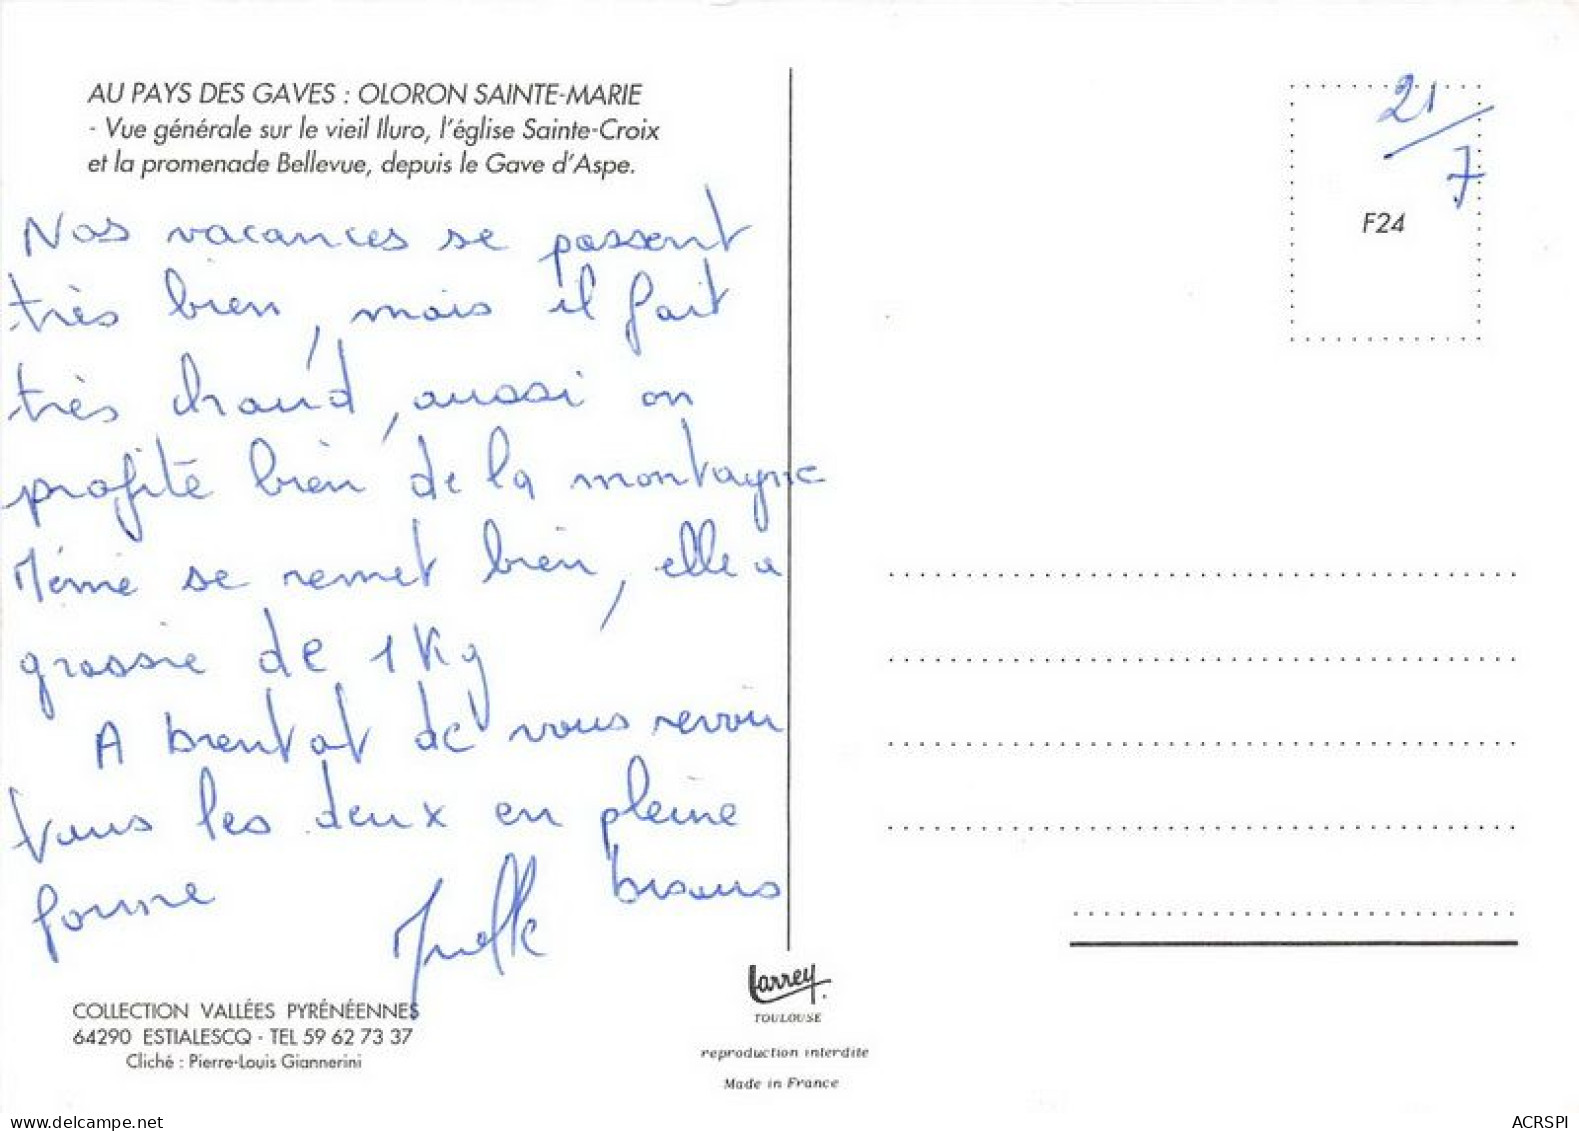 AU PAYS DES GAVES : OLORON SAINTE-MARIE
- Vue générale sur le vieil Iluro, l'église Sainte-Croix
et la promenade Bellevue, depuis le Gave d'Aspe.
21/7
F24
Nos vacances se passent
très bien, mais il fait
très chaud, aussi on
profite bien de la montagne
Mémé se remet bien, elle a
grossie de 1 Kg
A bientot de vous revoir
tous les deux en pleine
forme
bisous
COLLECTION VALLÉES PYRÉNÉENNES
64290 ESTIALESCQ - TEL 59 62 73 37
Cliché : Pierre-Louis Giannerini
Larrey
TOULOUSE
reproduction interdite
Made in France
www.delcampe.net
ACRSPI